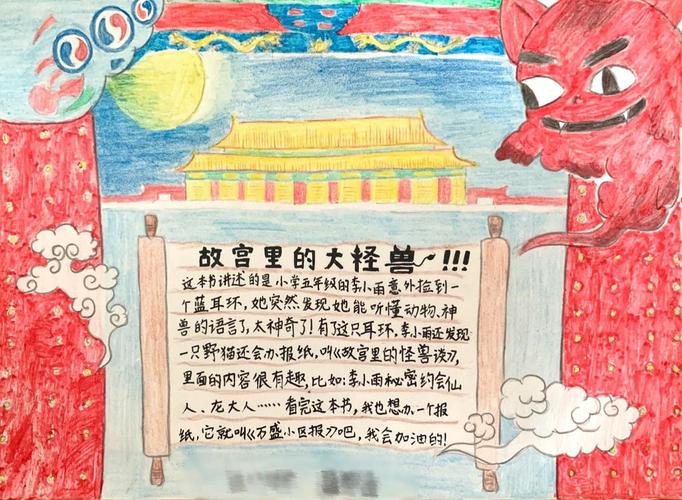 故宫里的大怪兽~!!!
这本书讲述的是小学五年级的李小雨意外捡到一
个蓝耳环,她突然发现她能听懂动物、神
兽的语言了,太神奇了!有了这只耳环,李小雨还发现
一只野猫还会办报纸,叫《故宫里的怪兽谈》,
里面的内容很有趣,比如:李小雨秘密约会仙
人、龙大人……看完这本书,我也想办一个报
纸,它就叫《万盛小区报》吧,我会加油的!